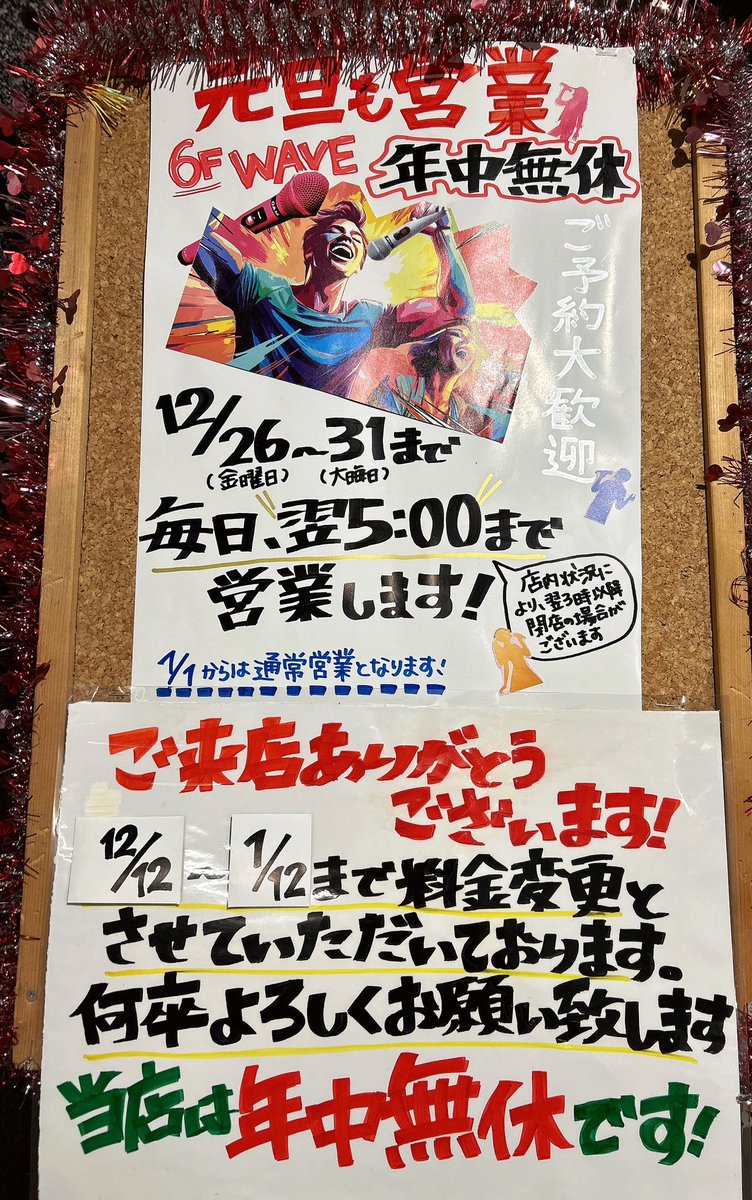 元旦も営業
6F WAVE 年中無休
ご予約大歓迎
12/26~31まで
(金曜日) (大晦日)
毎日、翌5:00まで
営業します!
店内状況に
より、翌3時以降
閉店の場合が
ございます
1/1からは通常営業となります!
ご来店ありがとう
ございます!
12/12~1/12まで料金変更と
させていただいております。
何卒よろしくお願い致します
当店は年中無休です!